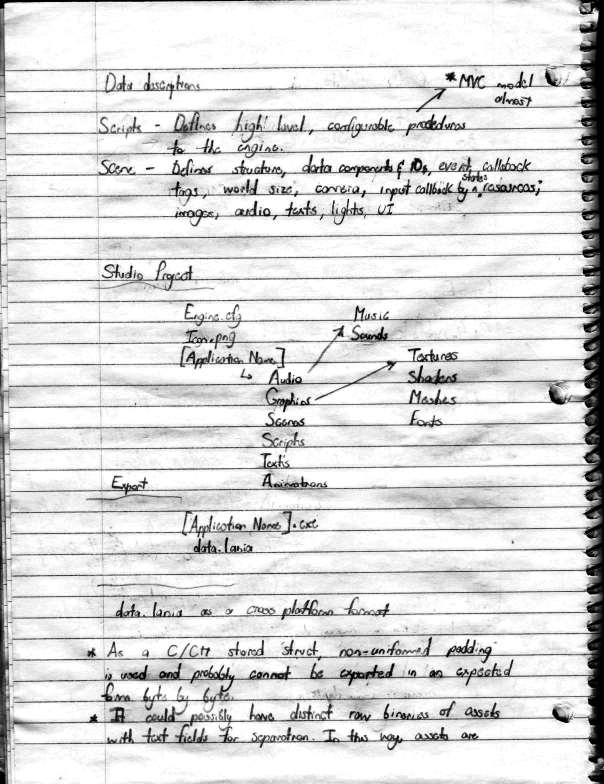 Data descriptions
* MVC model
almost
Scripts - Defines high level, configurable procedures
to the engine.
Scene - Defines structure, data components & IDs, event callback
tags, world size, camera, input callback by states, resources;
images, audio, texts, lights, UI
Studio Project
Engine.cfg
Music
Icon.png
Sounds
[Application Name]
Textures
↳ Audio
Shaders
Graphics
Meshes
Scenes
Fonts
Scripts
Texts
Export
Animations
[Application Name].exe
data.lania
data.lania as a cross platform format
* As a C/C++ stored struct, non-uniformed padding
is used and probably cannot be exported in an expected
form byte by byte.
* It could possibly have distinct raw binaries of assets
with text fields for separation. In this way, assets are